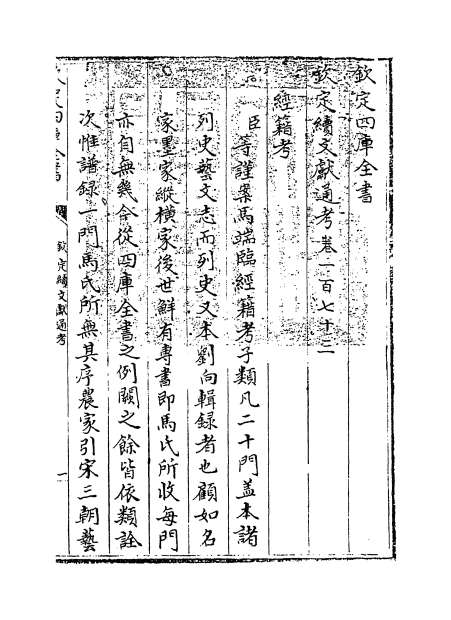 欽定四庫全書
欽定續文獻通考卷一百七十三
經籍考
臣等謹案馬端臨經籍考子類凡二十門蓋本諸
列史藝文志而列史又本劉向輯録者也顧如名
家墨家縱横家後世鮮有專書即馬氏所收每門
亦自無幾今從四庫全書之例闕之餘皆依類詮
次惟譜録一門馬氏所無其序農家引宋三朝藝
欽定四庫全書
欽定續文獻通考
一